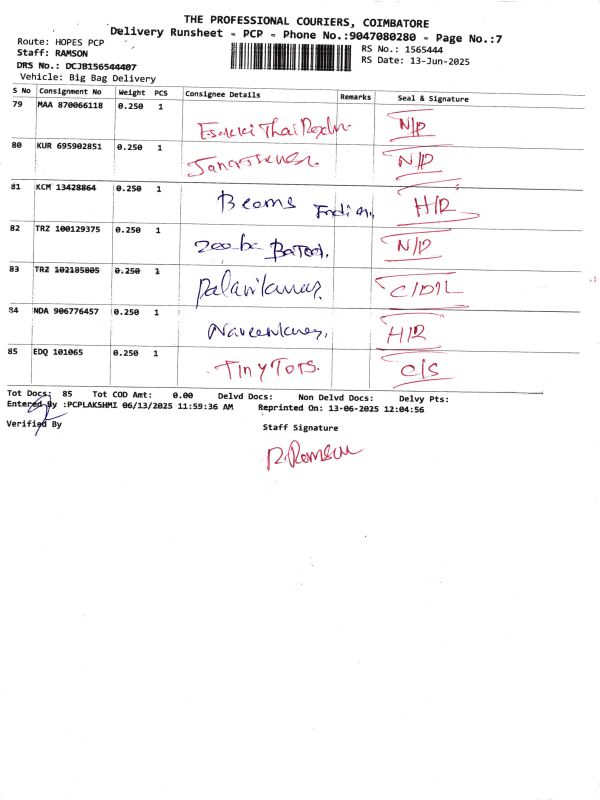 THE PROFESSIONAL COURIERS, COIMBATORE
Delivery Runsheet - PCP - Phone No.:9047080280 - Page No.:7
Route: HOPES PCP
RS No.: 1565444
Staff: RAMSON
RS Date: 13-Jun-2025
DRS No.: DCJB156544407
Vehicle: Big Bag Delivery
S No Consignment No Weight PCS Consignee Details Remarks Seal & Signature
79 MAA 870066118 0.250 1
N/D
80 KUR 695902851 0.250 1
N/D
81 KCM 13428864 0.250 1
Beams Indian, H/R
82 TRZ 100129375 0.250 1
N/D
83 TRZ 102185805 0.250 1
84 NDA 906776457 0.250 1
H/R
85 EDQ 101065 0.250 1
Tiny Tots. C/S
Tot Docs: 85 Tot COD Amt: 0.00 Delvd Docs: Non Delvd Docs: Delvy Pts:
Entered By :PCPLAKSHMI 06/13/2025 11:59:36 AM Reprinted On: 13-06-2025 12:04:56
Verified By
Staff Signature